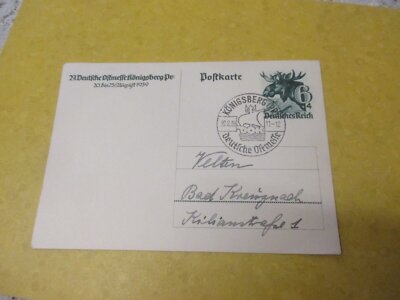 27. Deutsche Ostmesse Königsberg Pr.
20. bis 23. August 1939
Postkarte
6
+4
Deutsches Reich
KÖNIGSBERG
11-12
Deutsche Ostmesse
Velten
Bad Kreuznach
Kilianstraße 1